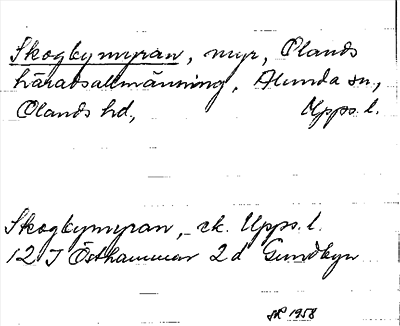 Skogbymyran, myr, Olands
häradsallmänning, Alunda sn,
Olands hd, Upps. l.
Skogbymyran, ek. Upps. l.
12 I Östhammar 2d Gundbyn
1958